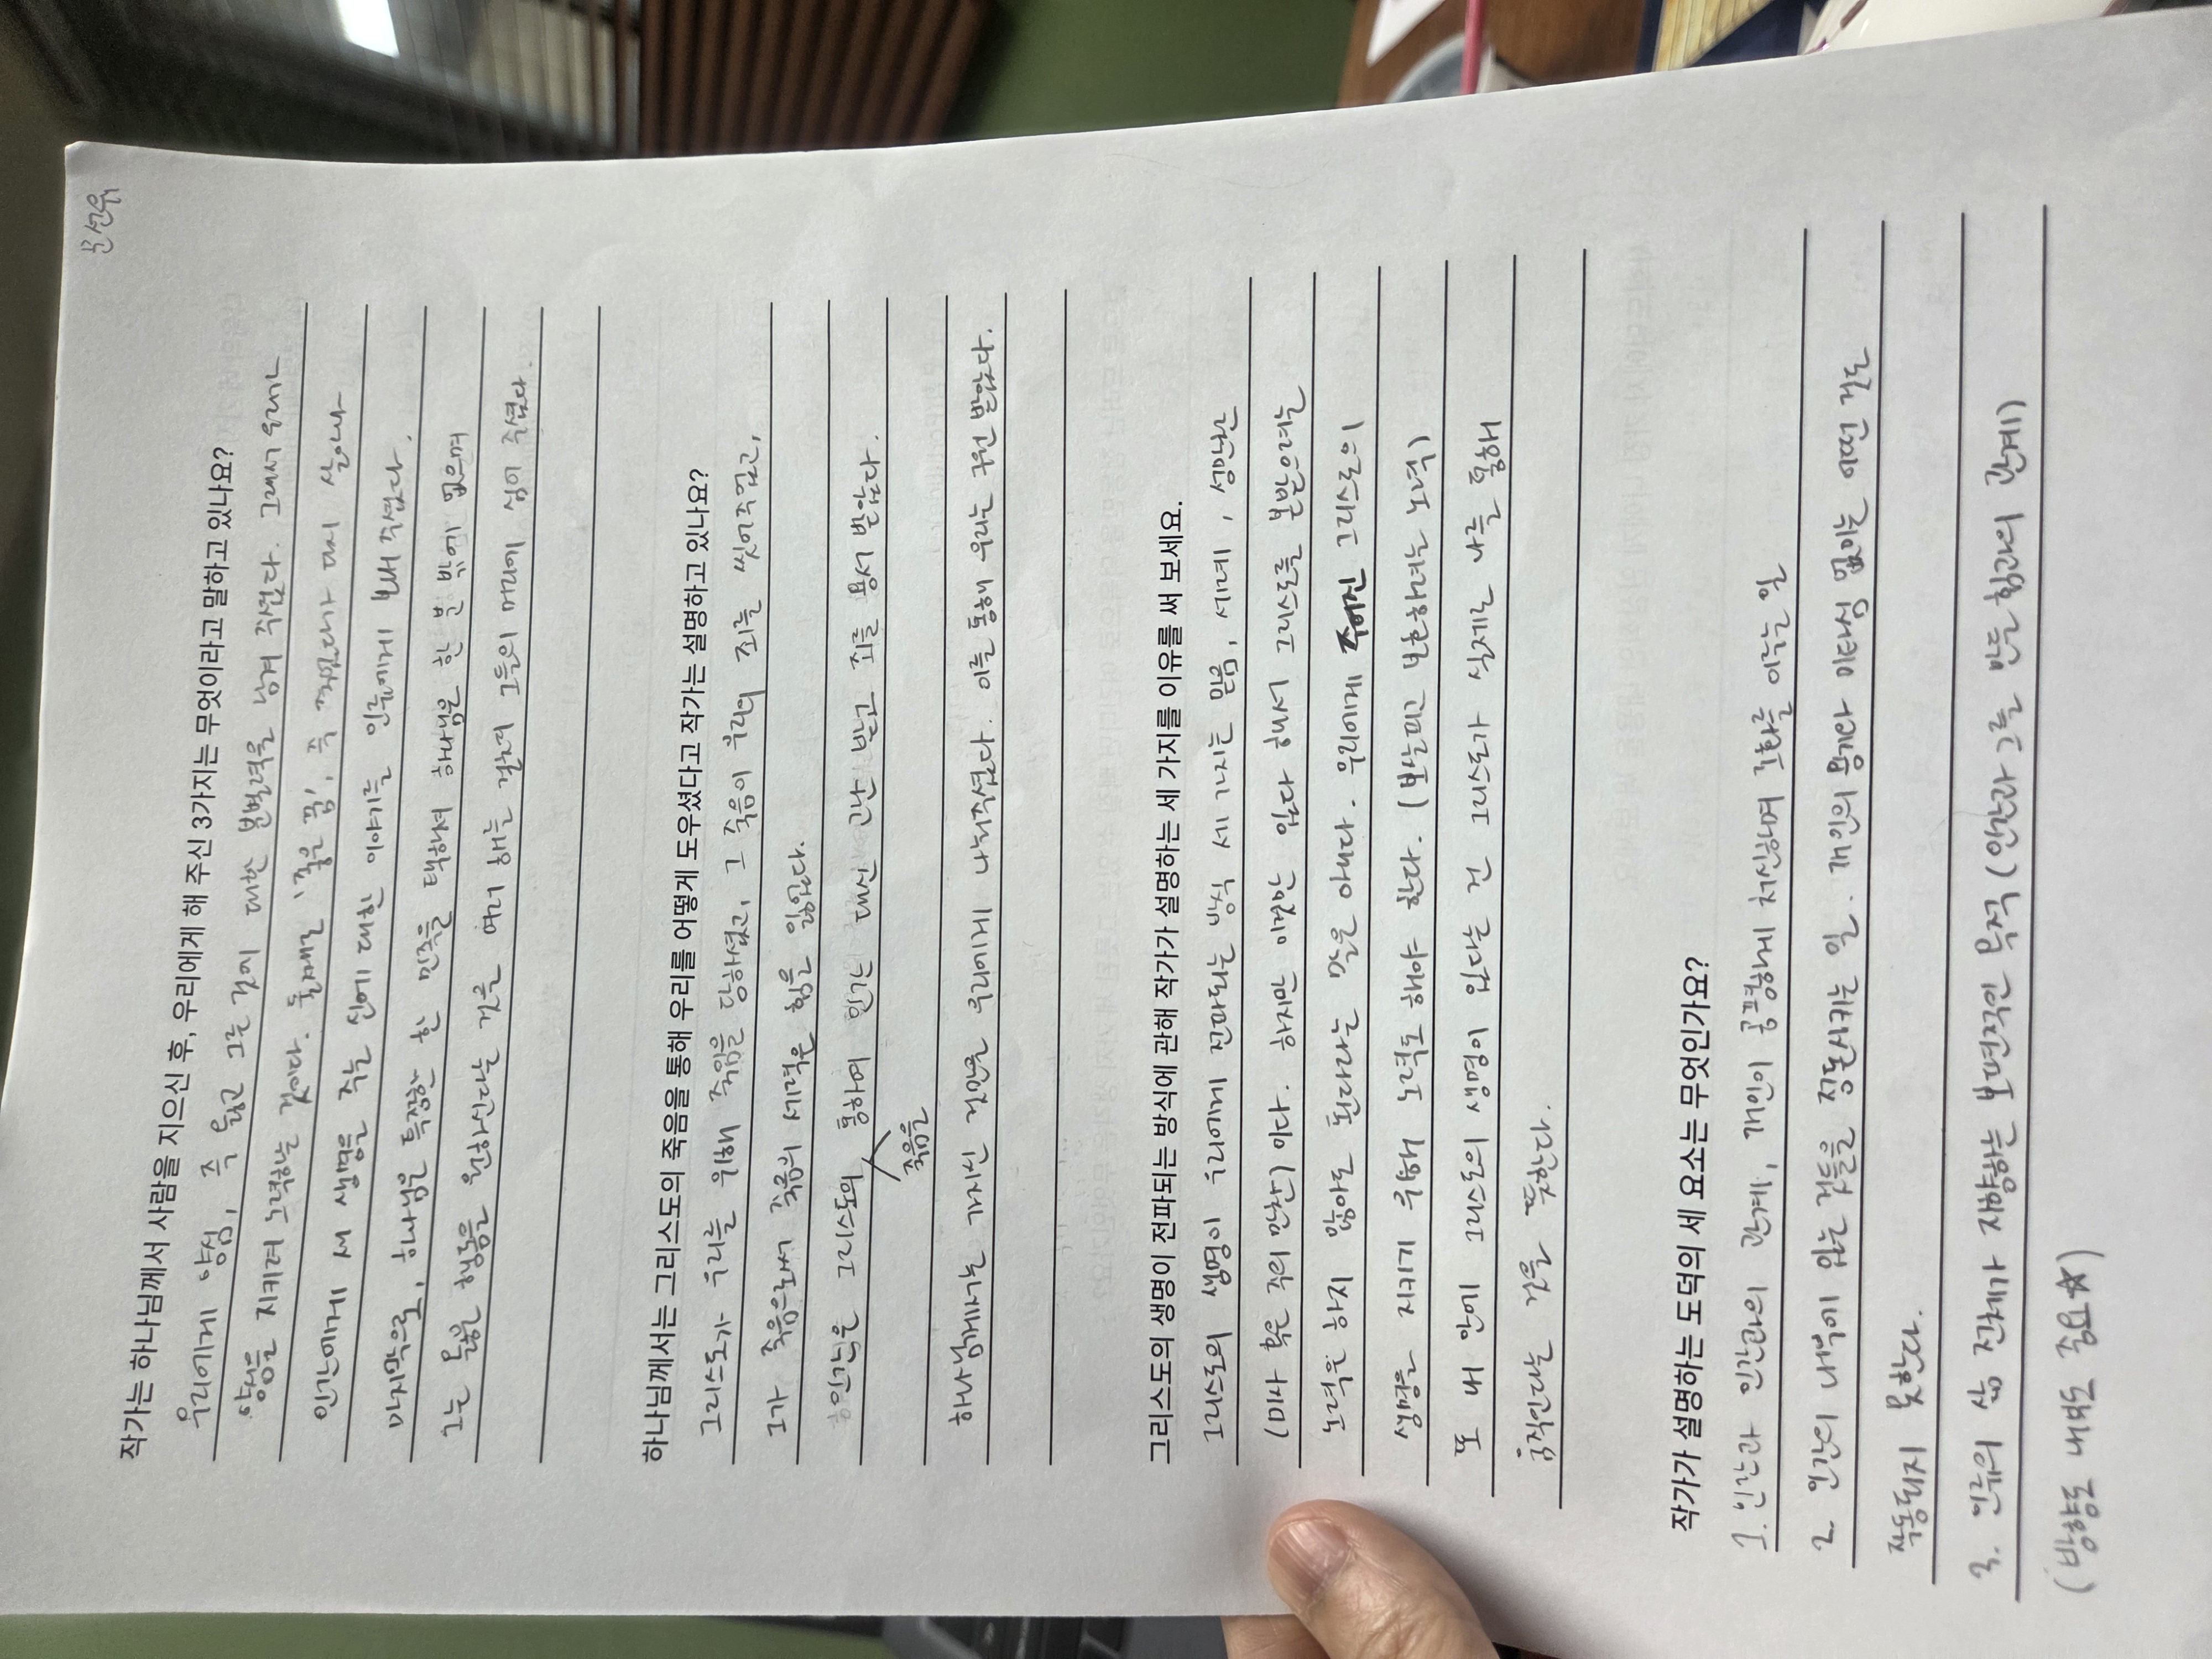 문선유
작가는 하나님께서 사람을 지으신 후, 우리에게 해 주신 3가지는 무엇이라고 말하고 있나요?
우리에게 양심, 즉 옳고 그른 것에 대한 분별력을 남겨 주셨다. 그래서 우리가
양심을 지키려 노력하는 것이다. 둘째로 '좋은 꿈', 즉 죽었다가 다시 살아나
인간에게 새 생명을 주는 신에 대한 이야기를 인류에게 보내 주셨다.
마지막으로, 하나님은 특정한 한 민족을 택하셔 하나님은 한 분 밖에 없으며
그는 옳은 행동을 원하신다는 것을 여러 해를 걸쳐 그들의 머리에 심어 주셨다.
하나님께서는 그리스도의 죽음을 통해 우리를 어떻게 도우셨다고 작가는 설명하고 있나요?
그리스도가 우리를 위해 죽임을 당하셨고, 그 죽음이 우리의 죄를 씻어주었고,
그가 죽음으로써 죽음의 세력은 힘을 잃었다.
인간은 그리스도의 통하여 인간는 대신 간난 받고 죄를 용서 받았다.
죽음을
하나님께서는 가지신 것만을 우리에게 나눠주셨다. 이를 통해 우리는 구원 받았다.
그리스도의 생명이 전파되는 방식에 관해 작가가 설명하는 세 가지를 이유를 써 보세요.
그리스도의 생명이 우리에게 전파되는 방식 세 가지는 믿음, 세례, 성만찬
(미사 혹은 주의 만찬)이다. 하지만 이것만 있다 해서 그리스도를 본받으려는
노력은 하지 않아도 된다라는 말은 아니다. 우리에게 주어진 그리스도의
생명을 지키기 위해 노력도 해야 한다. (본능과 보호하려는 노력)
또 내 안에 그리스도의 생명이 있다는 건 그리스도가 실제로 나를 통해
움직인다는 것을 뜻한다.
작가가 설명하는 도덕의 세 요소는 무엇인가요?
1. 인간과 인간과의 관계, 개인이 공평하게 처신하며 조화를 이루는 일
2. 인간의 내부에 있는 것들을 정돈시키는 일. 개인의 마음 상태에 이상이 있으면 제대로
작동되지 못한다.
3. 인류의 삶 전체가 지향하는 보편적인 목적 (인간과 그를 만든 힘과의 관계)
(방향도 내면도 중요☆)